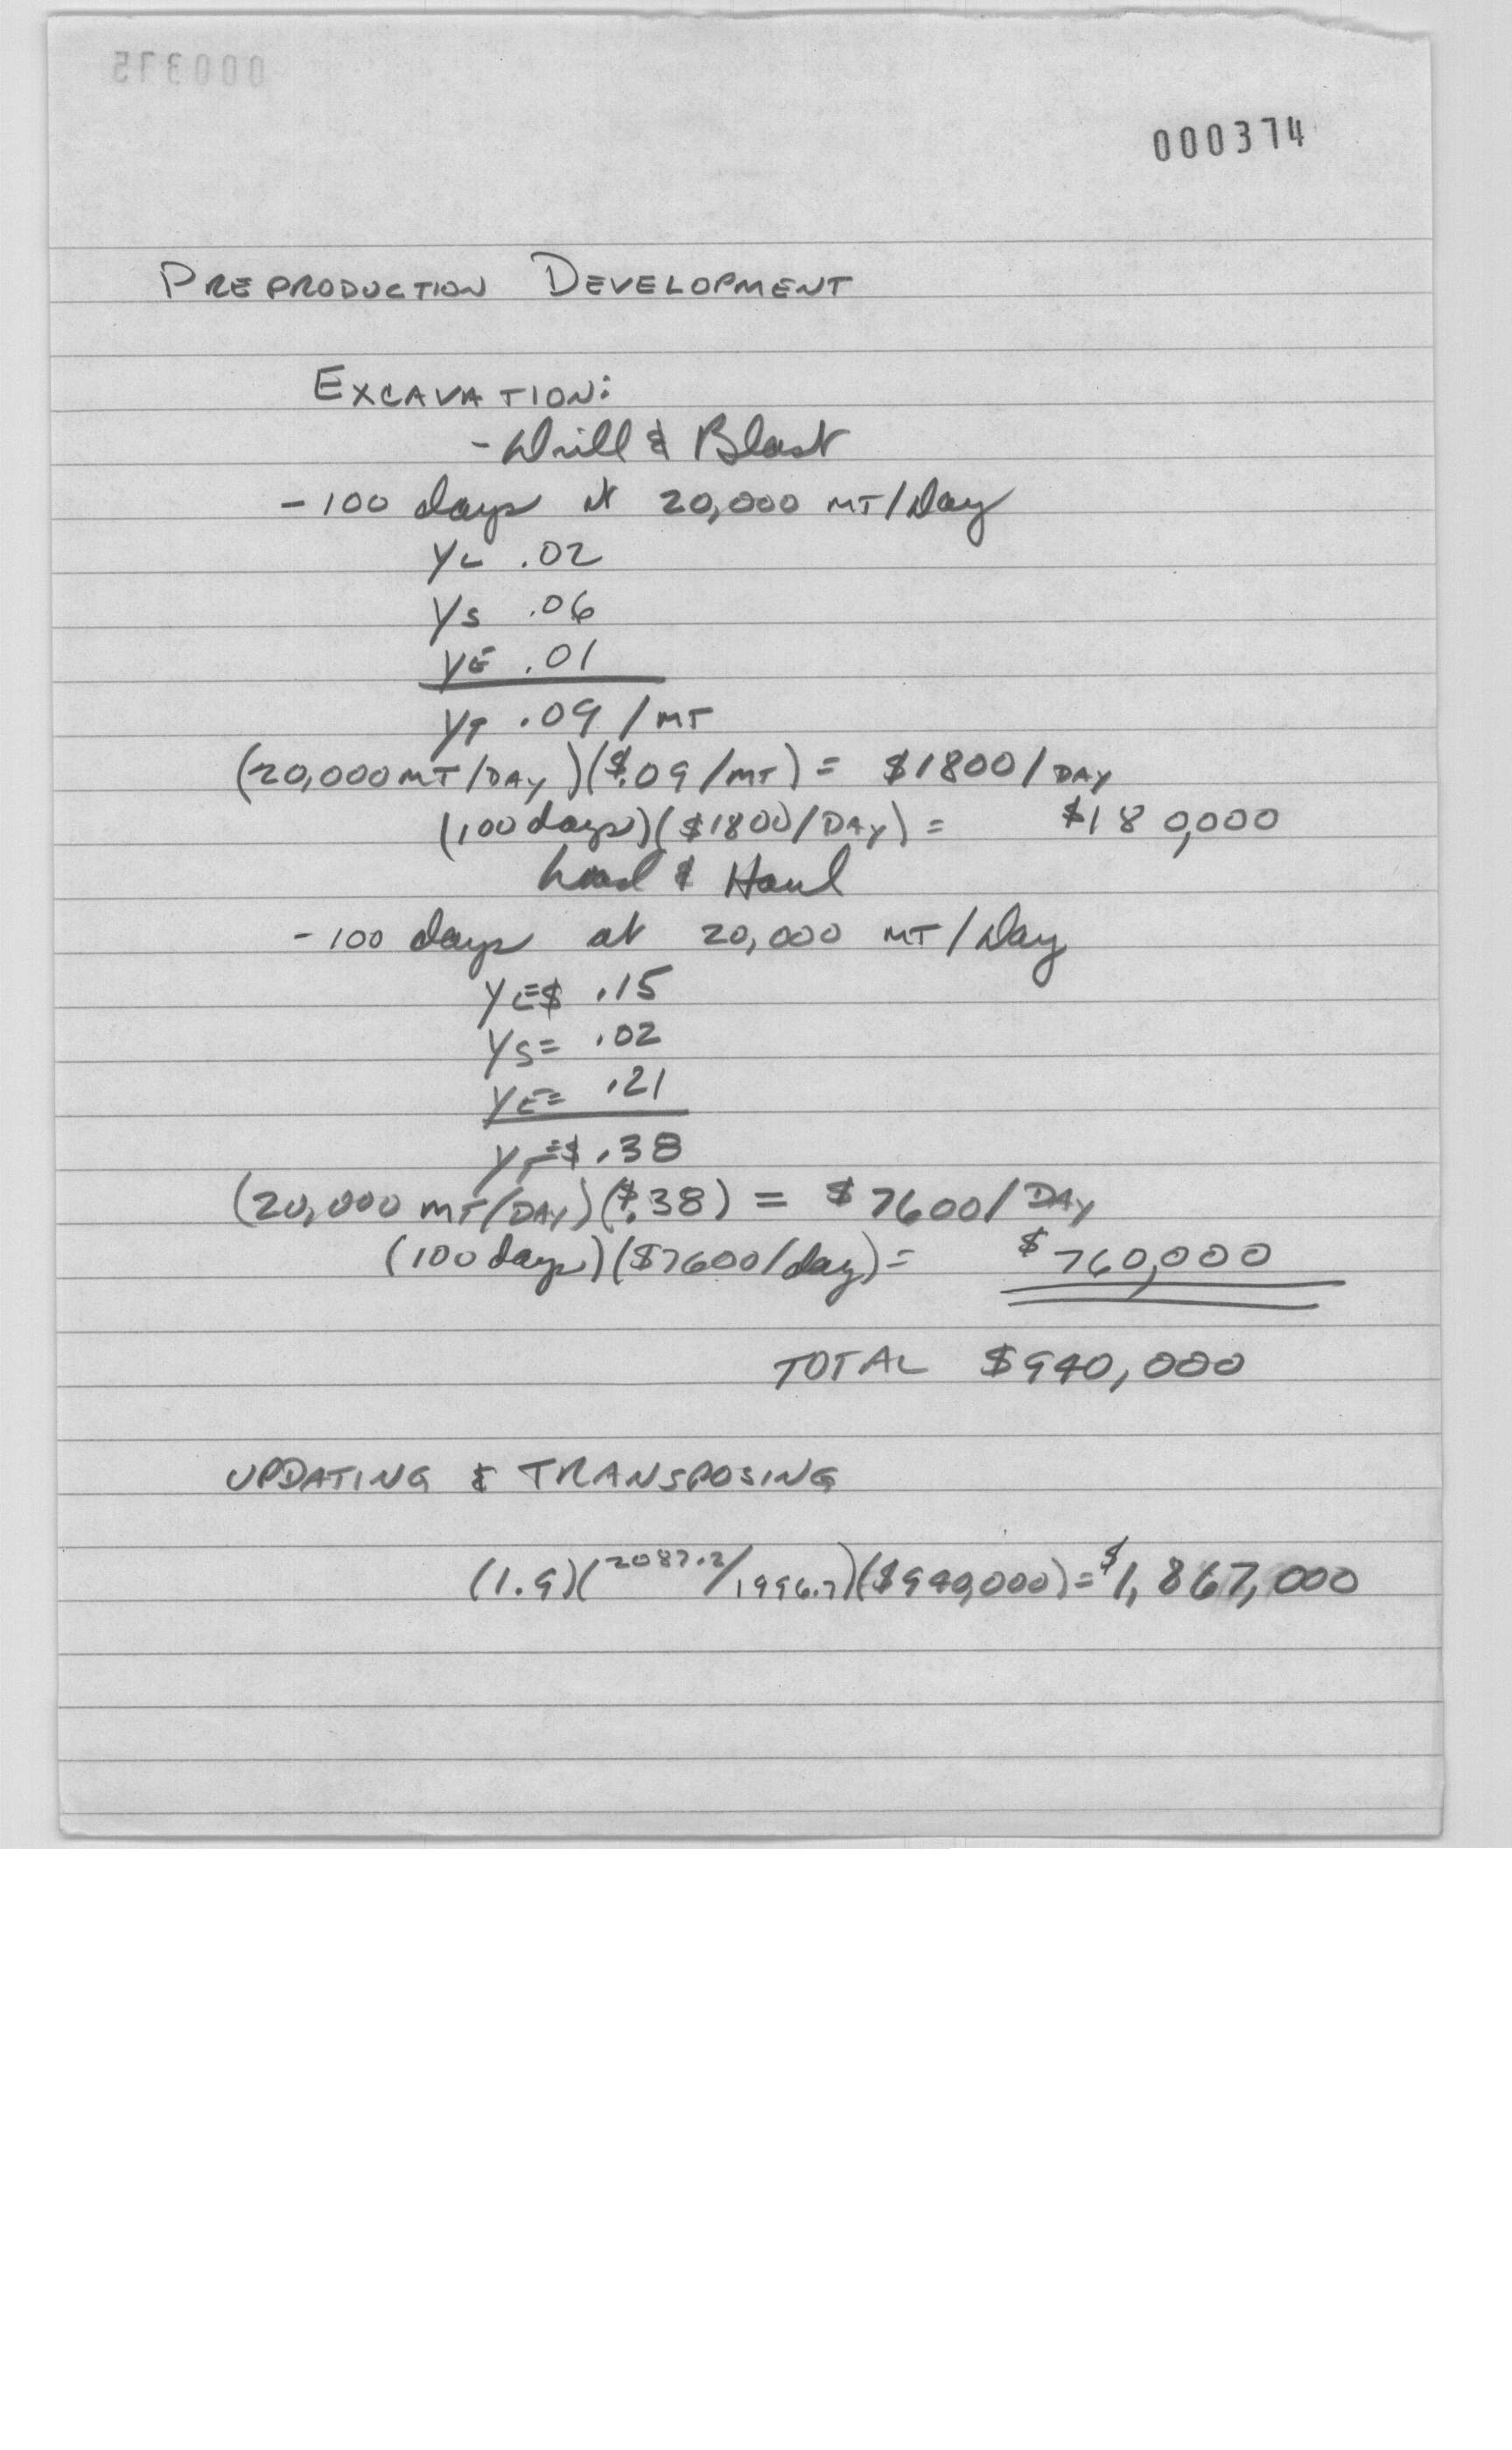 000375
000374
PREPRODUCTION DEVELOPMENT
EXCAVATION:
- Drill & Blast
- 100 days at 20,000 MT/Day
YL .02
YS .06
YE .01
YT .09 /MT
(20,000 MT/DAY)($.09/MT) = $1800/DAY
(100 days)($1800/DAY) = $180,000
Load & Haul
- 100 days at 20,000 MT/Day
YL=$ .15
YS= .02
YE= .21
YT=$ .38
(20,000 MT/DAY)($.38) = $7600/DAY
(100 days)($7600/day) = $760,000
TOTAL $940,000
UPDATING & TRANSPOSING
(1.9)(2087.2/1996.7)($940,000)=$1,867,000